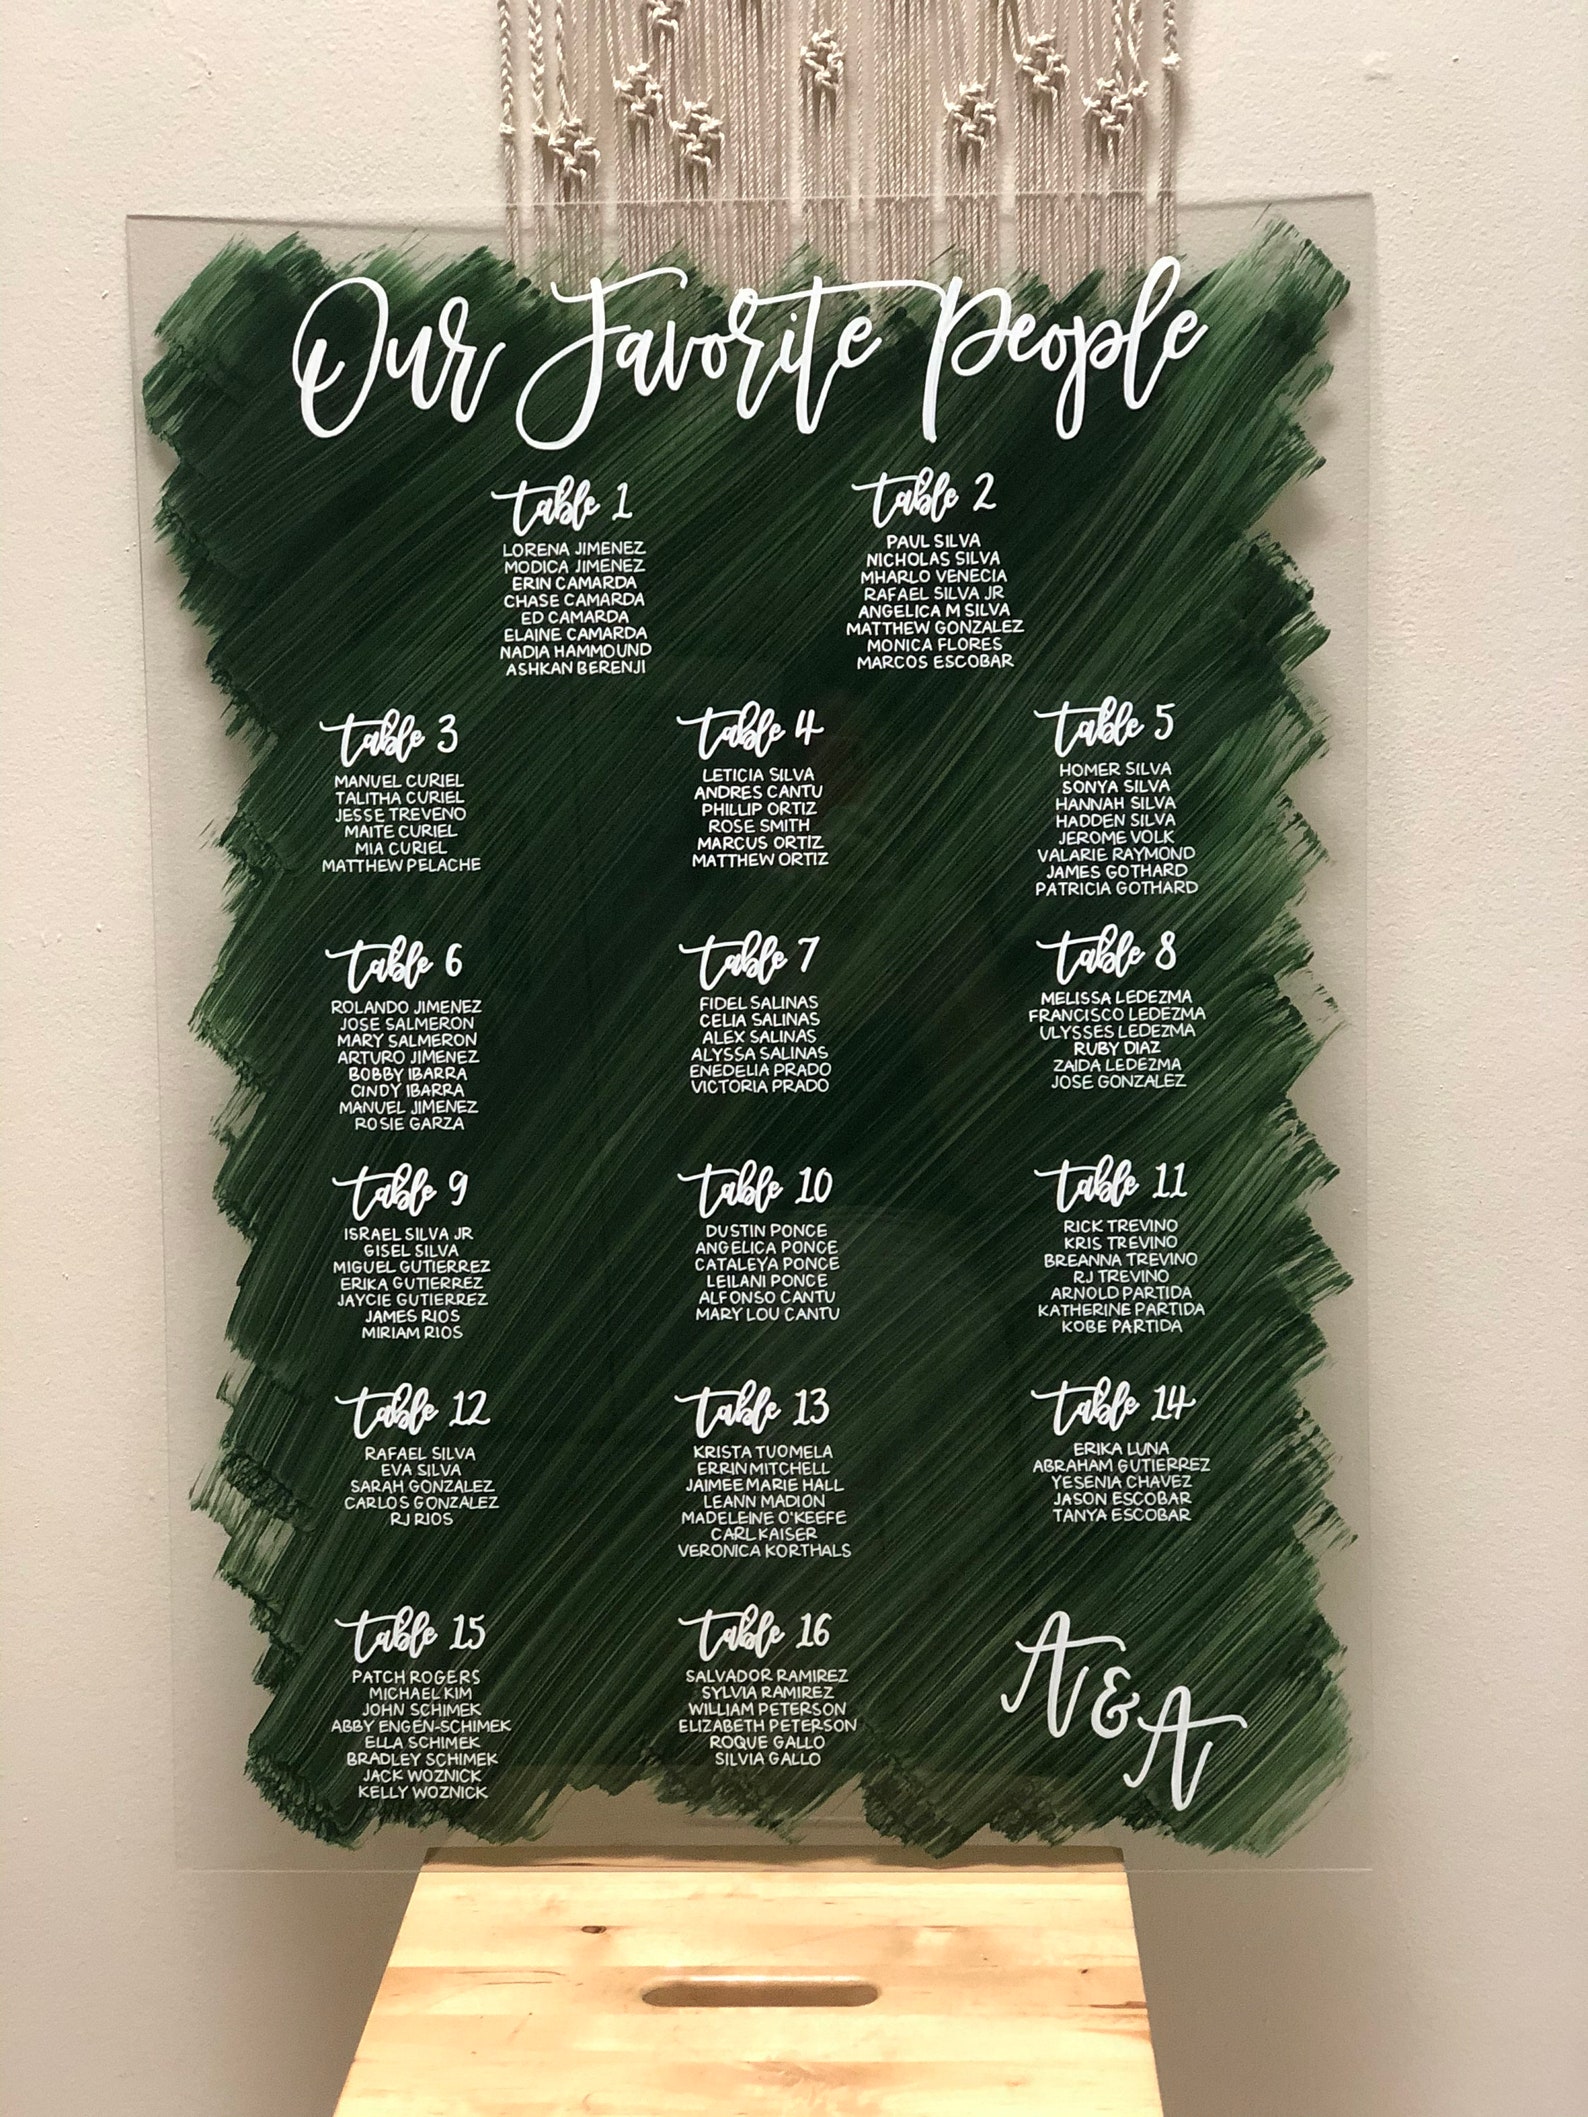 Our Favorite People
table 1
LORENA JIMENEZ
MODICA JIMENEZ
ERIN CAMARDA
CHASE CAMARDA
ED CAMARDA
ELAINE CAMARDA
NADIA HAMMOUND
ASHKAN BERENJI
table 2
PAUL SILVA
NICHOLAS SILVA
MHARLO VENECIA
RAFAEL SILVA JR
ANGELICA M SILVA
MATTHEW GONZALEZ
MONICA FLORES
MARCOS ESCOBAR
table 3
MANUEL CURIEL
TALITHA CURIEL
JESSE TREVENO
MAITE CURIEL
MIA CURIEL
MATTHEW PELACHE
table 4
LETICIA SILVA
ANDRES CANTU
PHILLIP ORTIZ
ROSE SMITH
MARCUS ORTIZ
MATTHEW ORTIZ
table 5
HOMER SILVA
SONYA SILVA
HANNAH SILVA
HADDEN SILVA
JEROME VOLK
VALARIE RAYMOND
JAMES GOTHARD
PATRICIA GOTHARD
table 6
ROLANDO JIMENEZ
JOSE SALMERON
MARY SALMERON
ARTURO JIMENEZ
BOBBY IBARRA
CINDY IBARRA
MANUEL JIMENEZ
ROSIE GARZA
table 7
FIDEL SALINAS
CELIA SALINAS
ALEX SALINAS
ALYSSA SALINAS
ENEDELIA PRADO
VICTORIA PRADO
table 8
MELISSA LEDEZMA
FRANCISCO LEDEZMA
ULYSSES LEDEZMA
RUBY DIAZ
ZAIDA LEDEZMA
JOSE GONZALEZ
table 9
ISRAEL SILVA JR
GISEL SILVA
MIGUEL GUTIERREZ
ERIKA GUTIERREZ
JAYCIE GUTIERREZ
JAMES RIOS
MIRIAM RIOS
table 10
DUSTIN PONCE
ANGELICA PONCE
CATALEYA PONCE
LEILANI PONCE
ALFONSO CANTU
MARY LOU CANTU
table 11
RICK TREVINO
KRIS TREVINO
BREANNA TREVINO
RJ TREVINO
ARNOLD PARTIDA
KATHERINE PARTIDA
KOBE PARTIDA
table 12
RAFAEL SILVA
EVA SILVA
SARAH GONZALEZ
CARLOS GONZALEZ
RJ RIOS
table 13
KRISTA TUOMELA
ERRIN MITCHELL
JAIMEE MARIE HALL
LEANN MADION
MADELEINE O'KEEFE
CARL KAISER
VERONICA KORTHALS
table 14
ERIKA LUNA
ABRAHAM GUTIERREZ
YESENIA CHAVEZ
JASON ESCOBAR
TANYA ESCOBAR
table 15
PATCH ROGERS
MICHAEL KIM
JOHN SCHIMEK
ABBY ENGEN-SCHIMEK
ELLA SCHIMEK
BRADLEY SCHIMEK
JACK WOZNICK
KELLY WOZNICK
table 16
SALVADOR RAMIREZ
SYLVIA RAMIREZ
WILLIAM PETERSON
ELIZABETH PETERSON
ROQUE GALLO
SILVIA GALLO
A & A